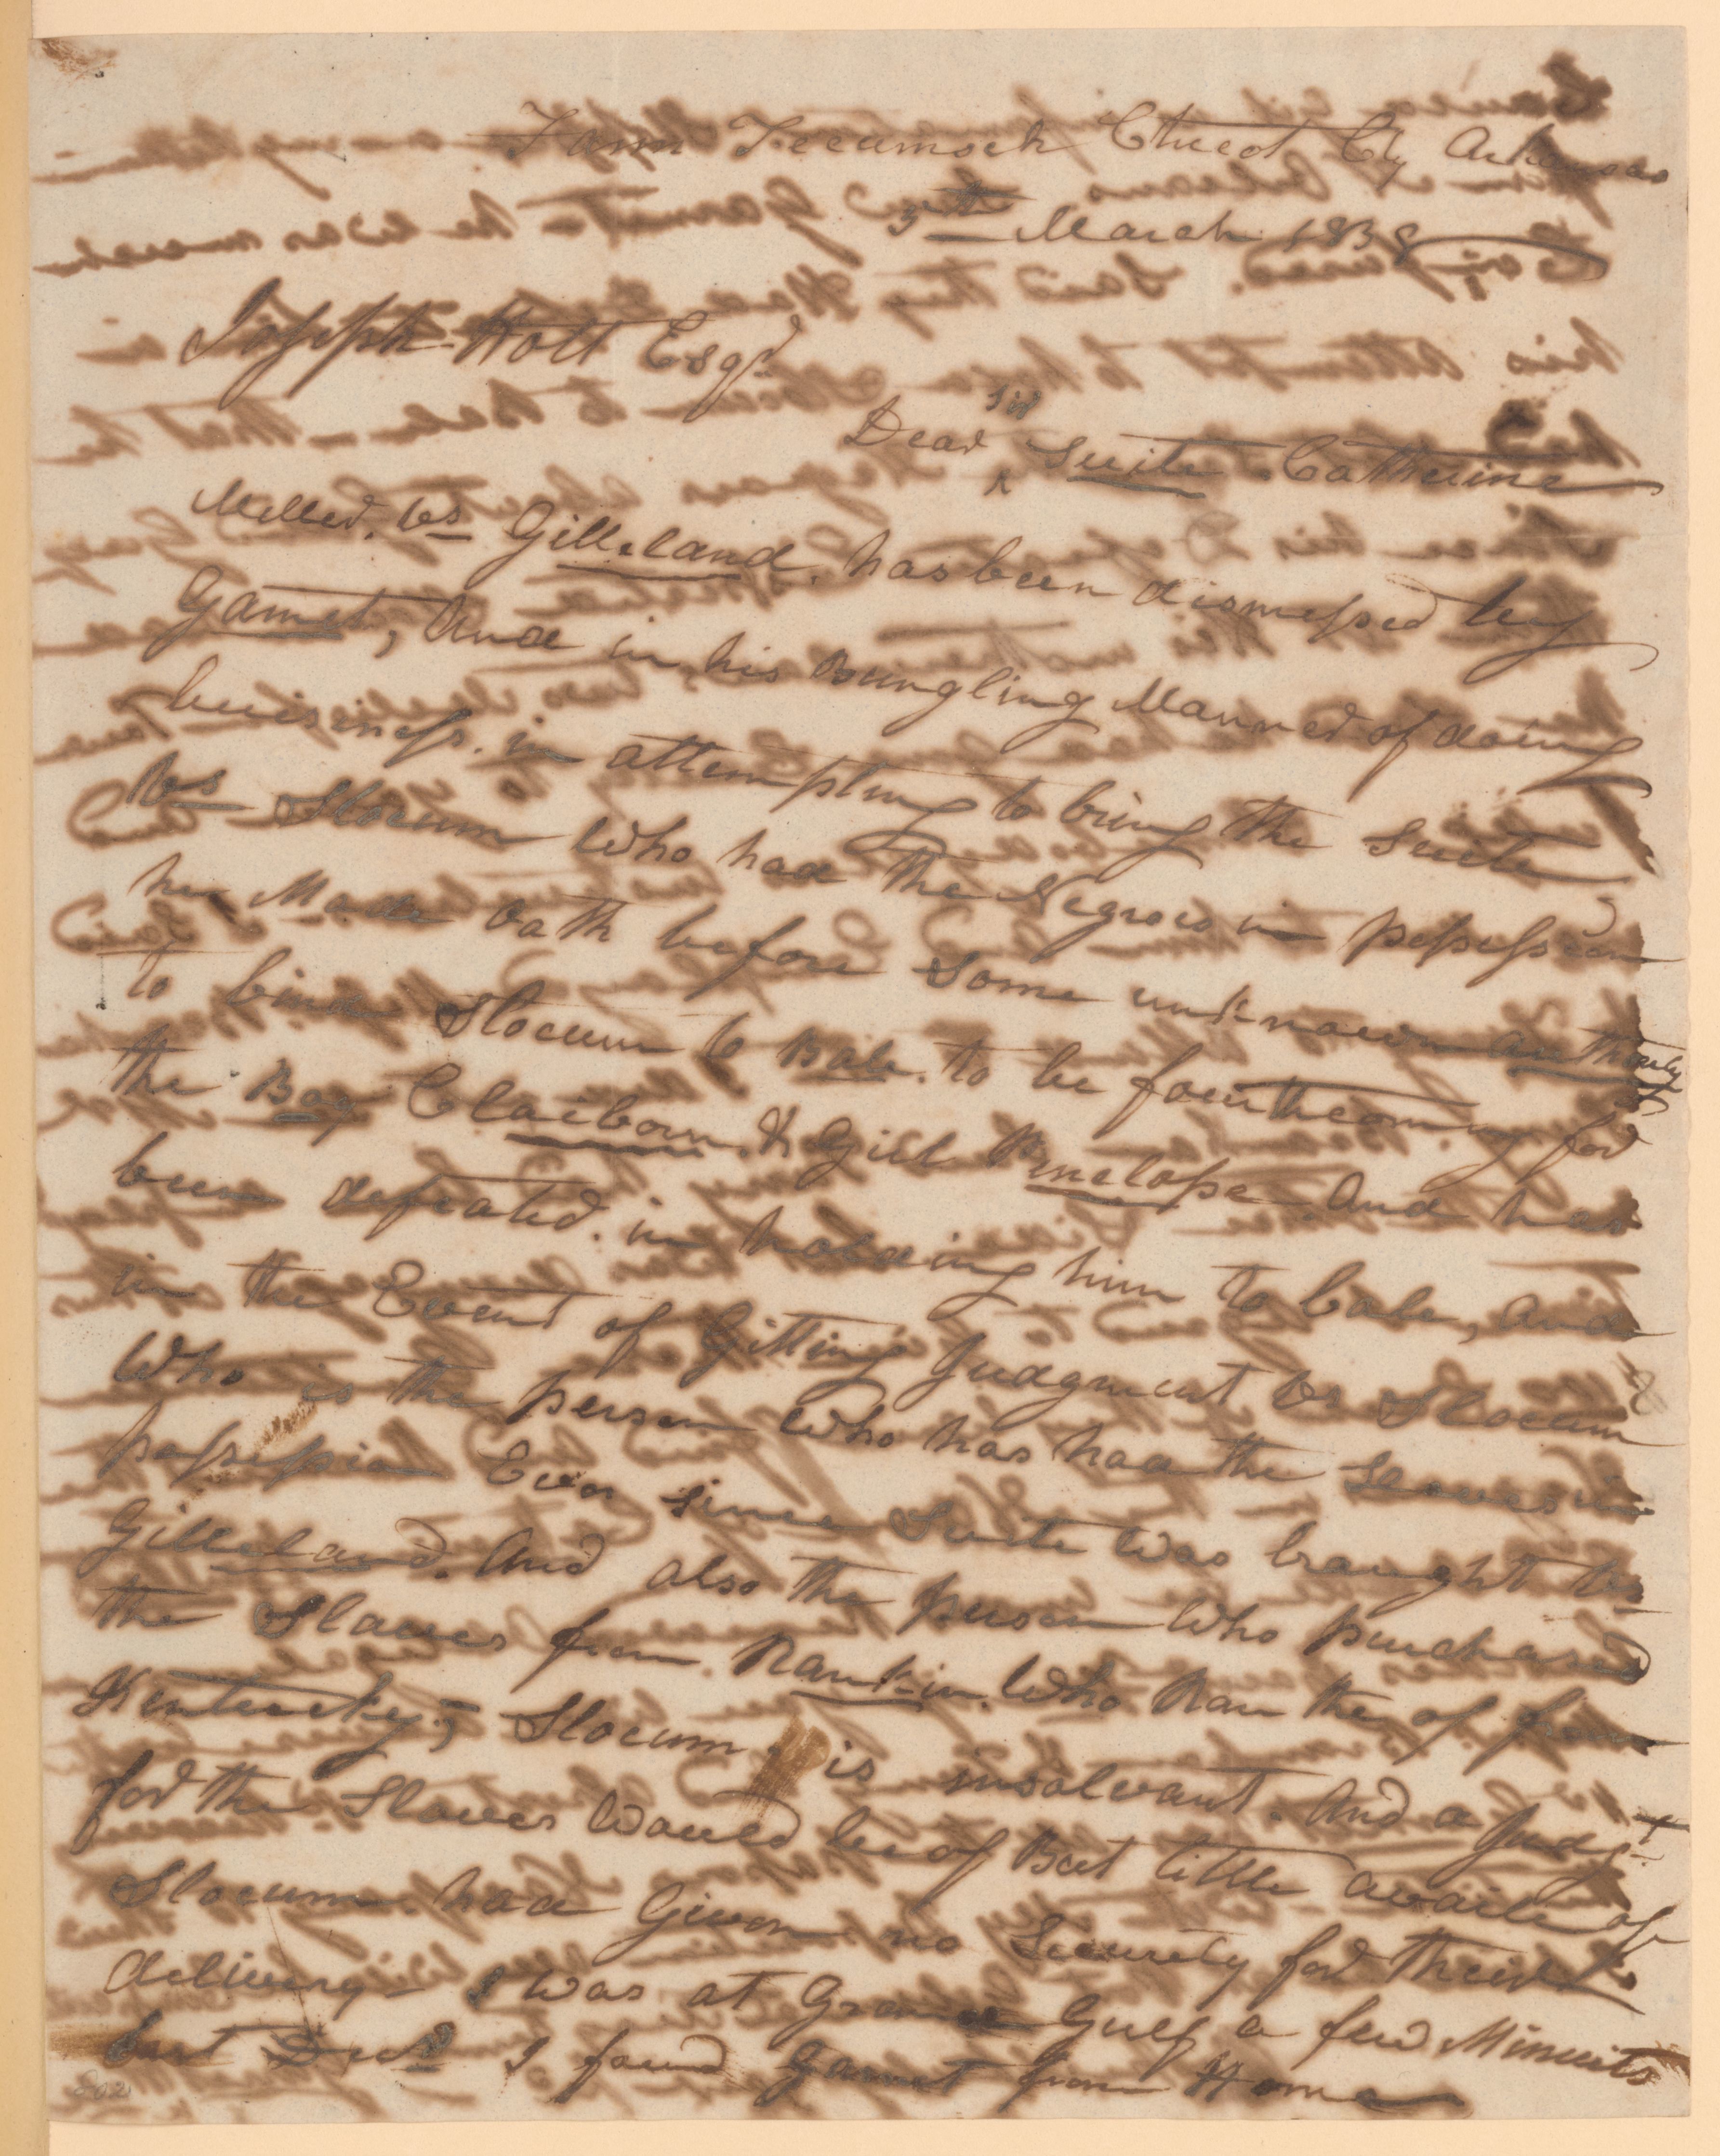 Fann Tecumseh Chicot Cty Arkansas
3th March 1838
Joseph Holt Esqr
Dear Sir Suite Catherine
Miller. Vs Gilleland. has been dismissed by
Garnet, And in his Bungling Manner of doing
buisiness. in attempting to bring the Suite
Vs Slocum who had the Negroes in possession
he Made oath before some unknown authority
to bind Slocum to Bale. to be fourthcoming for
the Boy Claiborn & Girl Penelope And has
been defeated. in holding him to bale, and
in the Event of Gitting Judgment Vs Slocum
Who is the person who has had the Slaves in
possession Ever since Suite was braught Vs
Gilleland. And also the person who purchased
the Slaves from. Rankin. Who Ran them of from
Kentucky; Slocum is insolvant. And a Judgt
for the Slaves would be of But little avail if
Slocum. had Given no Security for their
delivery I was at Grand Gulf a few Minuits
but I found Garnet from Home
802